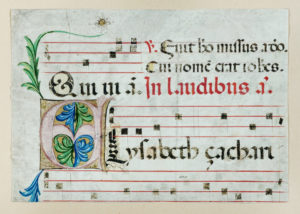 ℣. Fuit ho missus a do.
Cui nomē erat iohes.
Qui in ā. In laudibus ā.
Elysabeth zachari